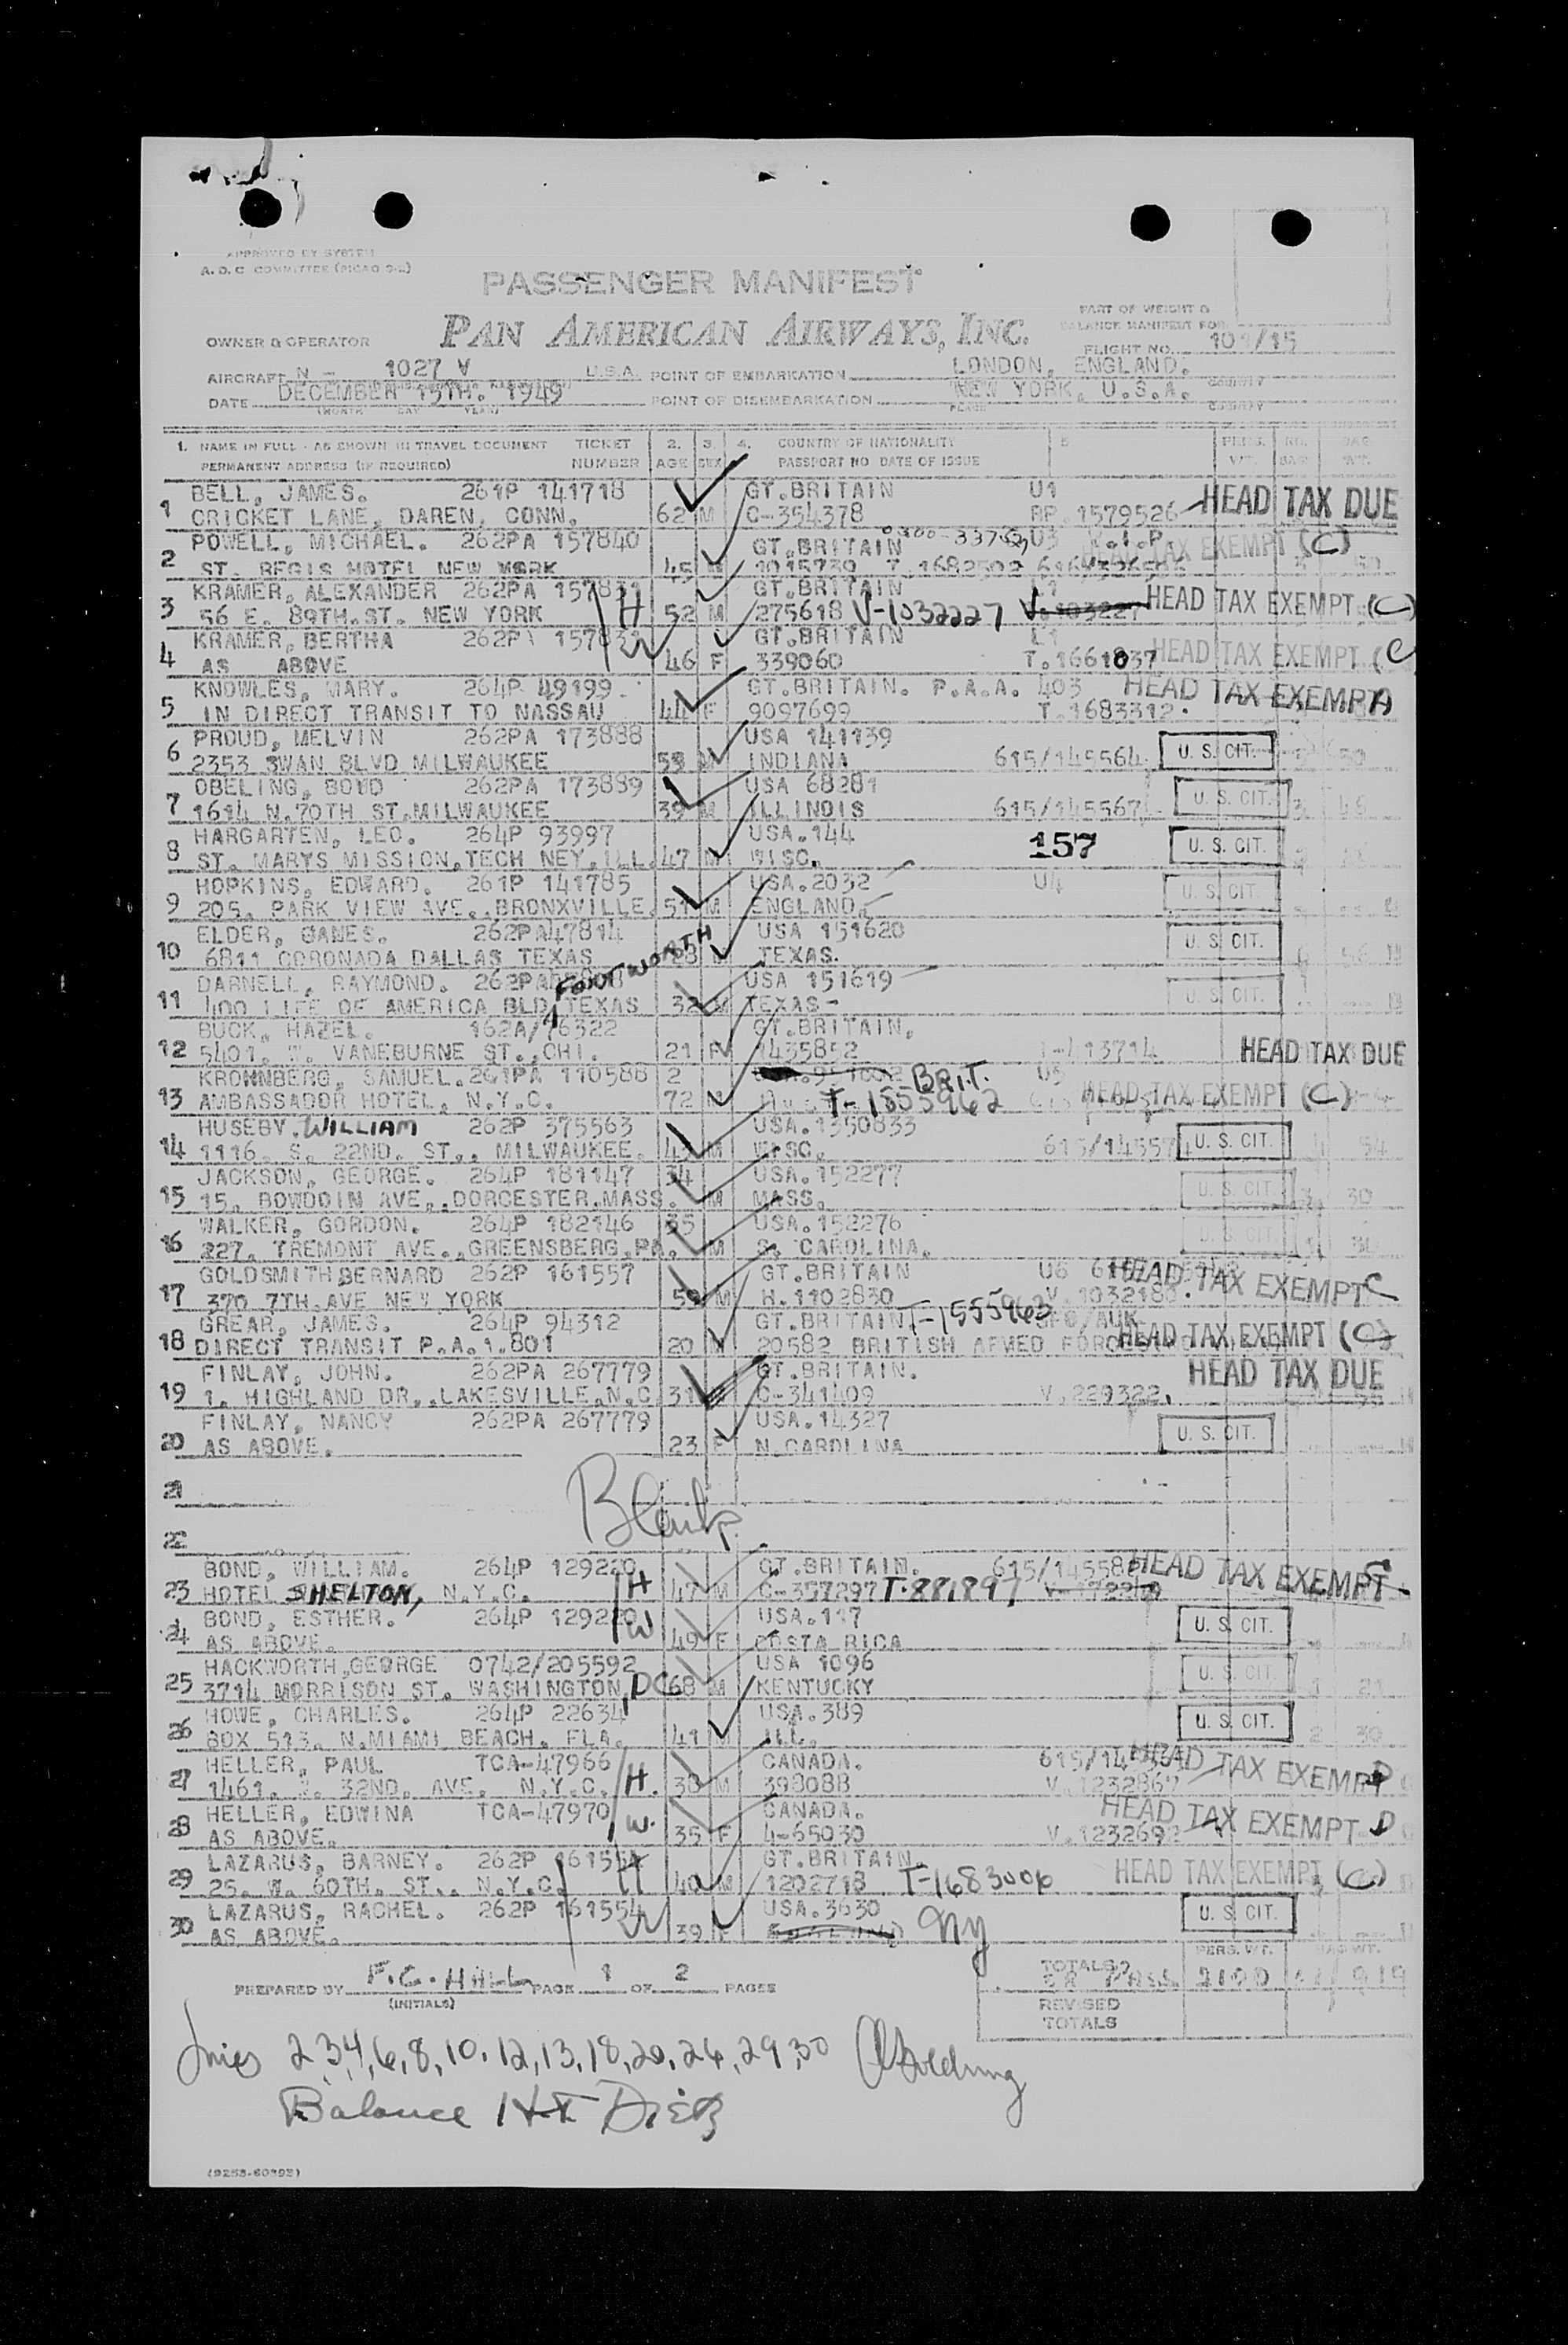 APPROVED BY SYSTEM
A. D. C. COMMITTEE (PICAO 9-2)
PASSENGER MANIFEST
PART OF WEIGHT &
BALANCE MANIFEST FOR
OWNER & OPERATOR PAN AMERICAN AIRWAYS, INC.
FLIGHT NO. 101/15
AIRCRAFT N - 1027 V U.S.A. POINT OF EMBARKATION LONDON, ENGLAND. COUNTRY
DATE DECEMBER 15TH. 1949 POINT OF DISEMBARKATION NEW YORK, U.S.A.
(MONTH DAY YEAR) PLACE COUNTRY
1. NAME IN FULL - AS SHOWN IN TRAVEL DOCUMENT TICKET 2. 3. 4. COUNTRY OF NATIONALITY 5
PERMANENT ADDRESS (IF REQUIRED) NUMBER AGE SEX PASSPORT NO DATE OF ISSUE
BELL, JAMES. 261P 141718 GT.BRITAIN U1
1 CRICKET LANE, DAREN, CONN. 62 M C-354378 PP.1579526 HEAD TAX DUE
POWELL, MICHAEL. 262PA 157840 GT.BRITAIN U3 V.I.P.
2 ST. REGIS HOTEL NEW YORK 45 M 1015739 HEAD TAX EXEMPT (C)
KRAMER, ALEXANDER 262PA 157831 GT.BRITAIN
3 56 E. 89TH.ST. NEW YORK H 52 M 275618 V-1032227 HEAD TAX EXEMPT (C)
KRAMER, BERTHA 262PA GT.BRITAIN
4 AS ABOVE W 46 F 339060 T.1661837 HEAD TAX EXEMPT (C
KNOWLES, MARY. 264P 49199 GT.BRITAIN. P.A.A. 403
5 IN DIRECT TRANSIT TO NASSAU 44 F 9097699 T.1683312. HEAD TAX EXEMPT A
PROUD, MELVIN 262PA 173888 USA 141139
6 2353 SWAN BLVD MILWAUKEE M INDIANA 615/145564 U. S. CIT.
OBELING, BOYD 262PA 173889 USA 68281
7 1614 N.70TH ST.MILWAUKEE 39 M ILLINOIS 615/145567 U. S. CIT.
HARGARTEN, LEO. 264P 93997 USA.144
8 ST. MARYS MISSION,TECH NEY,ILL. 47 M WISC. 157 U. S. CIT.
HOPKINS, EDWARD. 261P 141785 USA.2032 U4
9 205. PARK VIEW AVE..BRONXVILLE. 51 M ENGLAND. U. S. CIT.
ELDER, 262PA47814 USA 151620
10 6811 CORONADA DALLAS TEXAS 28 M TEXAS. U. S. CIT.
DARNELL, RAYMOND. USA 151619
FORT WORTH
11 400 LIFE OF AMERICA BLD TEXAS 32 M TEXAS- U. S. CIT.
BUCK, HAZEL. 162A/76322 GT.BRITAIN.
12 5401. W. VANEBURNE ST..CHI. 21 F 1435852 T-413714 HEAD TAX DUE
KRONNBERG, SAMUEL.261PA 110588 2 BRIT. U3
13 AMBASSADOR HOTEL, N.Y.C. 72 M T-1855962 HEAD TAX EXEMPT (C)
HUSEBY.WILLIAM 262P 375563 USA.1350833
14 1116. S. 22ND. ST.. MILWAUKEE. M WISC. U. S. CIT. 54
JACKSON, GEORGE. 264P 181147 34 USA.152277
15 15. BOWDOIN AVE..DORCESTER.MASS. M MASS. U. S. CIT. 30
WALKER, GORDON. 264P 182146 35 USA.152276
16 227. TREMONT AVE..GREENSBERG.PA. M S. CAROLINA. U. S. CIT.
GOLDSMITH,BERNARD 262P 161557 GT.BRITAIN U6
17 370 7TH.AVE NEW YORK M H.1102830 V.1032180. HEAD TAX EXEMPT C
GREAR, JAMES. 264P 94312 GT.BRITAIN T-1555963
18 DIRECT TRANSIT P.A.A.801 20 M 20582 BRITISH ARMED FORCES HEAD TAX EXEMPT (C)
FINLAY, JOHN. 262PA 267779 GT.BRITAIN. HEAD TAX DUE
19 1. HIGHLAND DR..LAKESVILLE.N.C. 31 C-341409 V.229322.
FINLAY, NANCY 262PA 267779 USA.14327
20 AS ABOVE. 23 F N.CAROLINA U. S. CIT.
21
Blank
22
BOND, WILLIAM. 264P 129220 GT.BRITAIN.
23 HOTEL SHELTON, N.Y.C. H 47 M C-357297 T-881897 HEAD TAX EXEMPT
BOND, ESTHER. 264P 129220 USA.117
24 AS ABOVE. W 49 F COSTA RICA U. S. CIT.
HACKWORTH,GEORGE 0742/205592 USA 1096
25 3714 MORRISON ST. WASHINGTON, DC 68 M KENTUCKY U. S. CIT.
HOWE, CHARLES. 264P 22634 USA.389
26 BOX 513. N.MIAMI BEACH. FLA. 41 M ILL. U. S. CIT. 2 30
HELLER, PAUL TCA-47966 CANADA.
27 1461. 32ND. AVE. N.Y.C. H. 38 M 398088 V.1232867 HEAD TAX EXEMPT D
HELLER, EDWINA TCA-47970 CANADA.
28 AS ABOVE. W. 35 F 4-65030 V.1232692 HEAD TAX EXEMPT D
LAZARUS, BARNEY. 262P 161554 GT.BRITAIN.
29 25. W. 60TH. ST.. N.Y.C. H 40 M 1202718 T-1683006 HEAD TAX EXEMPT (C)
LAZARUS, RACHEL. 262P 161554 USA.3630
30 AS ABOVE. W 39 F NY U. S. CIT.
PERS. WT. BAG WT.
TOTALS PASS 2100 919
PREPARED BY F.C. HALL PAGE 1 OF 2 PAGES
(INITIALS)
REVISED
TOTALS
2,3,4,6,8,10,12,13,18,20,26,29,30
Balance
(9253-60393)